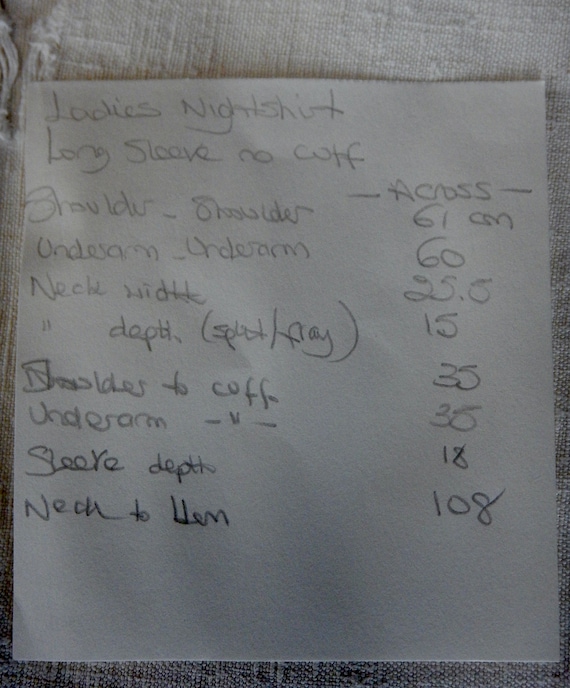 Ladies Nightshirt
Long Sleeve no cuff
— Across —
Shoulder - Shoulder 61 cm
Underarm - Underarm 60
Neck width 25.5
" depth (split/fray) 15
Shoulder to cuff 35
Underarm - " - 35
Sleeve depth 18
Neck to Hem 108